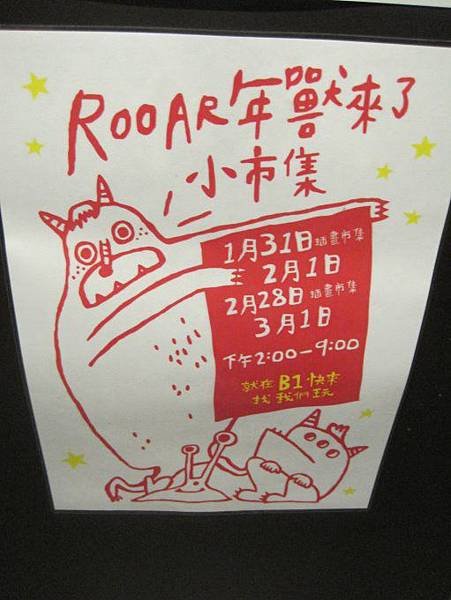 ROOAR年獸來了
小市集
1月31日插畫市集
2月1日
2月28日插畫市集
3月1日
下午2:00-9:00
就在B1快來
找我們玩